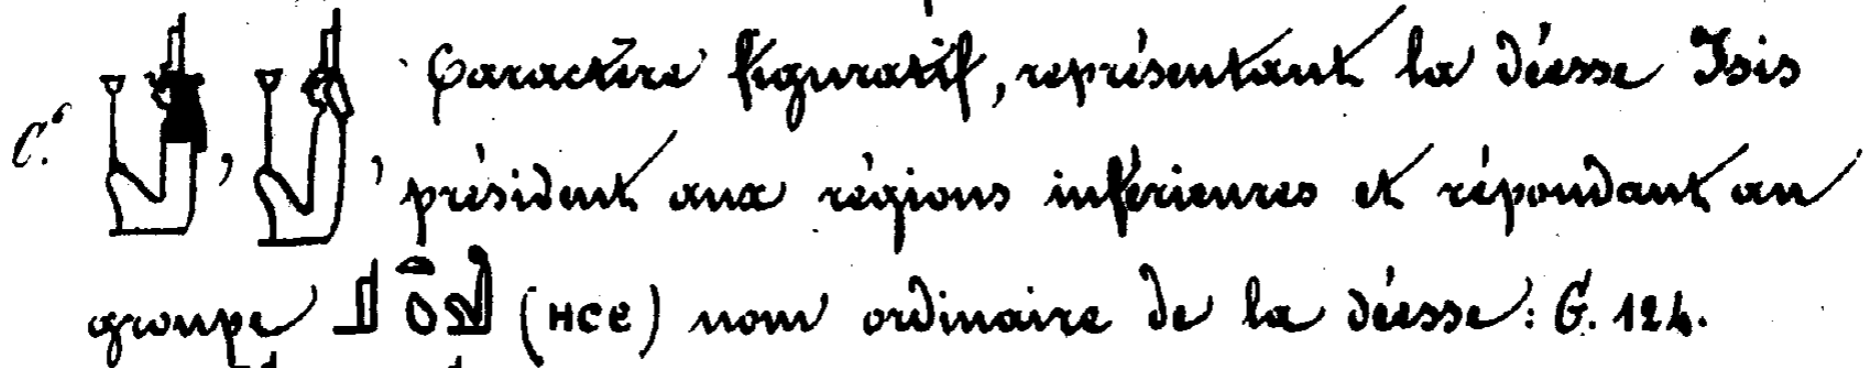 C. , , Caractère figuratif, représentant la déesse Isis
président aux régions inférieures et répondant au
groupe 𓊨𓏏𓆇 (ⲎⲤⲈ) nom ordinaire de la déesse : G. 124.